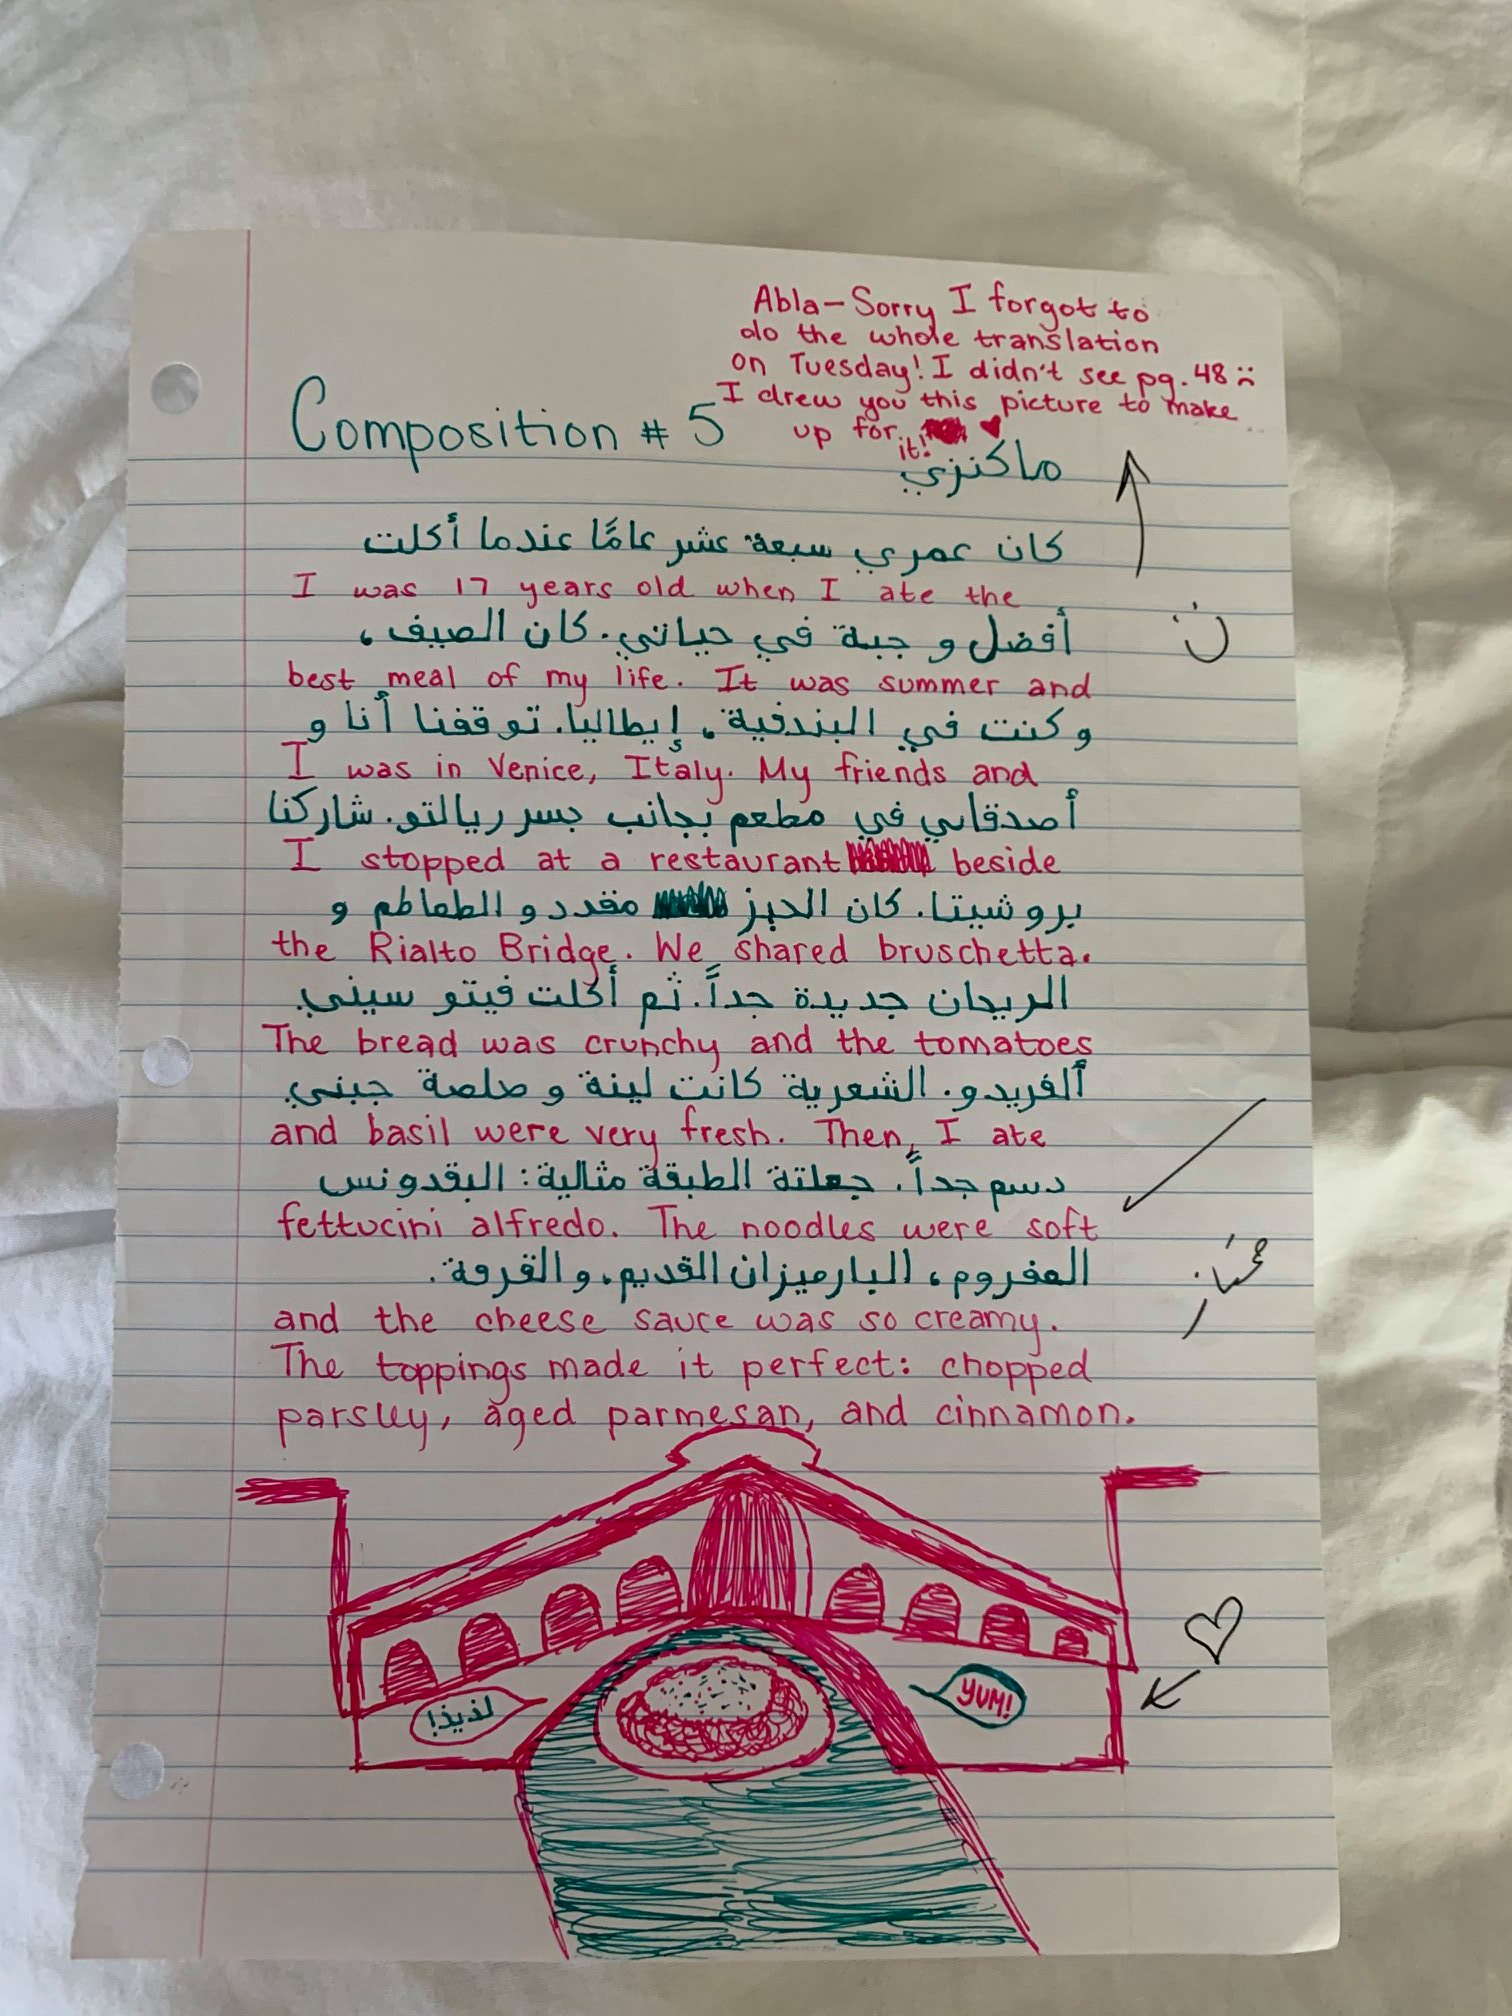 Abla - Sorry I forgot to
do the whole translation
on Tuesday! I didn't see pg. 48
I drew you this picture to make
up for it!
Composition # 5
ماكنزي
كان عمري سبعة عشر عامًا عندما أكلت
I was 17 years old when I ate the
أفضل وجبة في حياتي. كان الصيف،
best meal of my life. It was summer and
وكنت في البندقية، إيطاليا. توقفنا أنا و
I was in Venice, Italy. My friends and
أصدقائي في مطعم بجانب جسر ريالتو. شاركنا
I stopped at a restaurant beside
بروشيتا. كان الخبز مقدد و الطماطم و
the Rialto Bridge. We shared bruschetta.
الريحان جديدة جداً. ثم أكلت فيتو سيني
The bread was crunchy and the tomatoes
ألفريدو. الشعرية كانت لينة و صلصة جبني
and basil were very fresh. Then, I ate
دسم جداً. جعلتة الطبقة مثالية: البقدونس
fettucini alfredo. The noodles were soft
المفروم، البارميزان القديم، و القرفة.
and the cheese sauce was so creamy.
ممتاز
The toppings made it perfect: chopped
parsley, aged parmesan, and cinnamon.
لذيذ!
YUM!